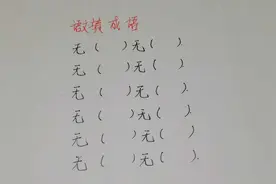 填成语
无（ ）无（ ）.
无（ ）无（ ）.
无（ ）无（ ）.
无（ ）无（ ）.
无（ ）无（ ）.
无（ ）无（ ）.